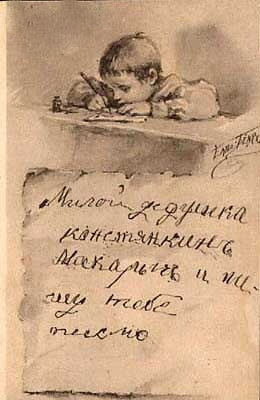 Милой дедушка
канстянкинъ
Макарычъ и пи-
шу тебѣ
писмо